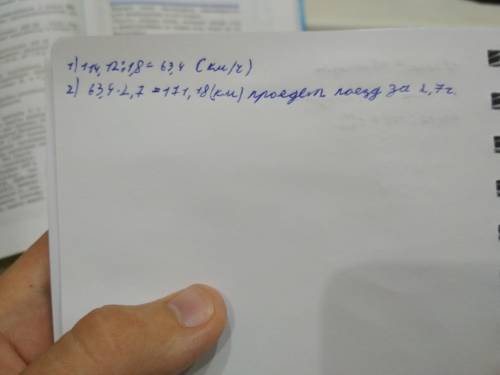 1) 114,12:1,8 = 63,4 (км/ч)
2) 63,4·2,7 = 171,18 (км) проедет поезд за 2,7ч.